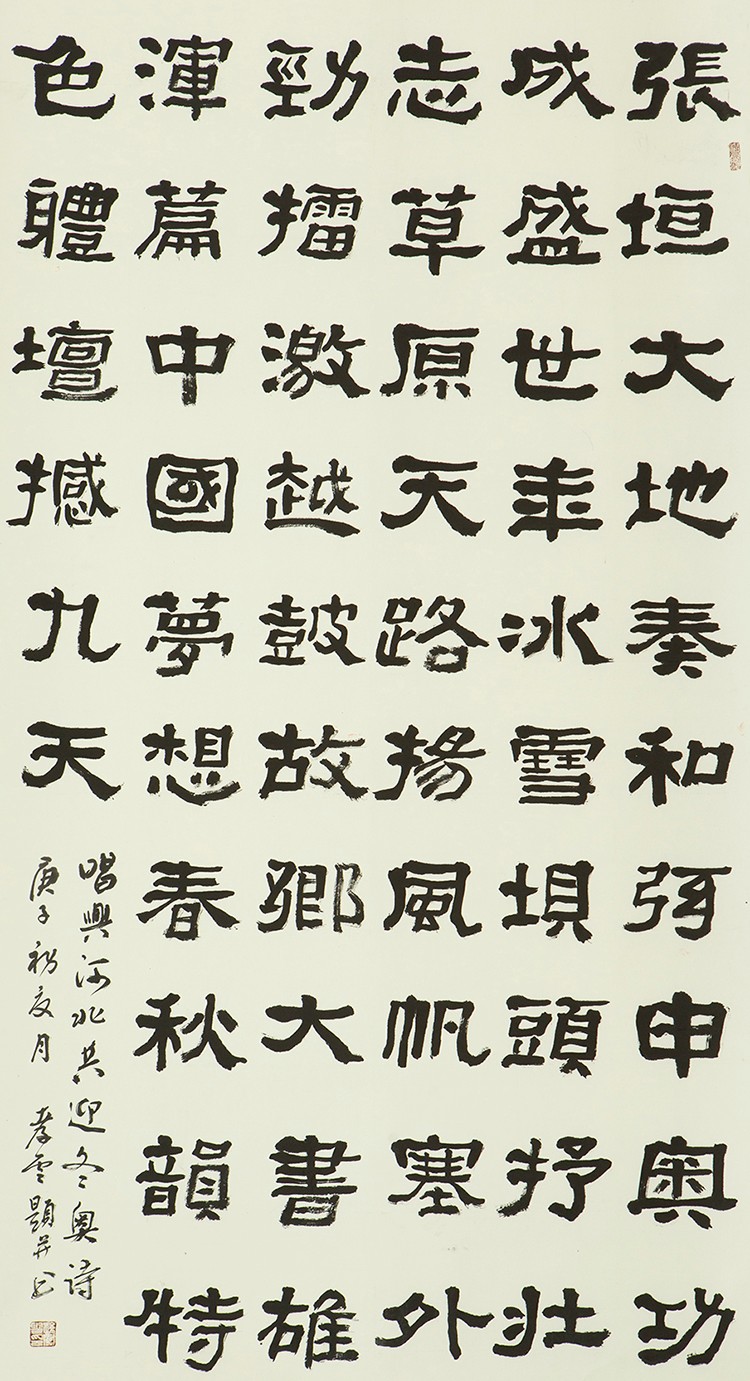 張垣大地奏和弦申奥功
成盛世年冰雪垻頭抒壯
志草原天路揚風帆塞外
勁擂激越鼓故鄉大書雄
渾篇中國夢想春秋韻特
色體壇撼九天
唱興河北共迎冬奥诗
庚子初夏月 孝雲題并书